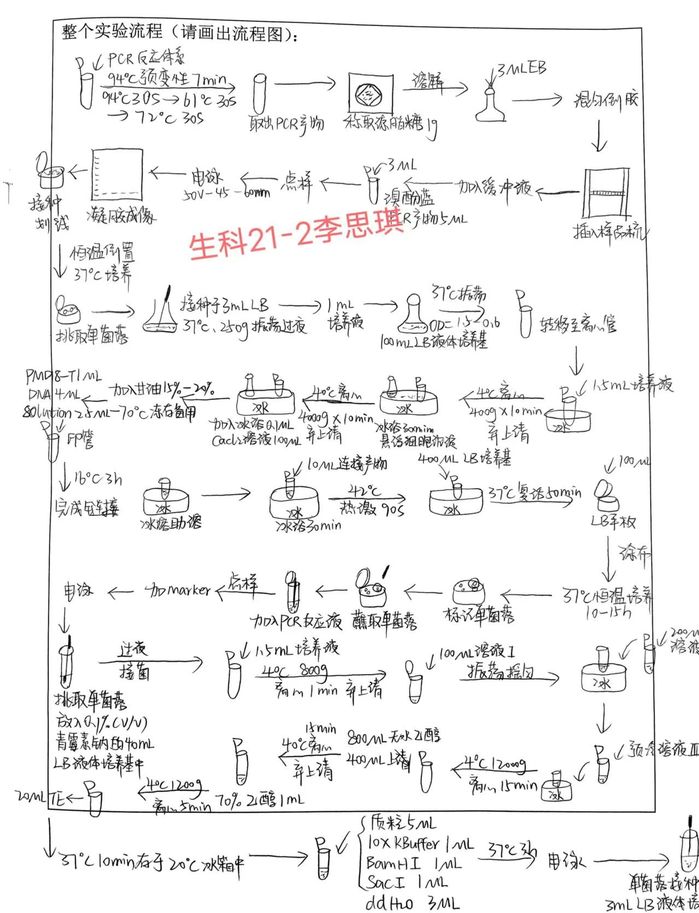 整个实验流程（请画出流程图）：
PCR反应体系
94℃预变性7min
94℃30S→61℃30S
→72℃30S
取出PCR产物
称取琼脂糖1g
溶解
3MLEB
混匀倒胶
插入样品梳
加入缓冲液
3ML
溴酚蓝
产物5ML
点样
电泳
50V-45-60min
凝胶成像
接种
划线
生科21-2李思琪
恒温倒置
37℃培养
挑取单菌落
接种于3mLLB
37℃、250g振荡过夜
1mL
培养液
37℃振荡
OD=1.5-0.6
100mLLB液体培养基
转移至离心管
1.5mL培养液
冰
4℃离心
4000g×10min
弃上清
冰
冰浴30min
4℃离心
4000g×10min
弃上清
冰
加入冰浴0.1mL
CaCl2溶液100mL
加入甘油15%-20%
-70℃冻存备用
PMD18-T1ML
DNA 4ML
Solution 2.5ML
EP管
16℃3h
完成链接
冰
10ML连接产物
冰
冰浴30min
42℃
热激90S
400ML LB培养基
冰
37℃复活50min
100ML
LB平板
涂布
37℃恒温培养
10-15h
标记单菌落
蘸取单菌落
加入PCR反应液
点样
加marker
电泳
挑取单菌落
放入0.1%(V/V)
青霉素钠的40mL
LB液体培养基中
过夜
摇菌
1.5mL培养液
4℃ 800g
离心1min弃上清
100ML溶液I
振荡摇匀
冰
200ML
溶液
预冷溶液III
冰
4℃12000g
离心15min
800ML无水乙醇
400ML上清
15min
离心
弃上清
70%乙醇1mL
4℃1200g
离心5min
20ML TE
37℃10min存于20℃冰箱中
质粒5ML
10×KBuffer 1ML
BamHI 1ML
SacI 1ML
ddH2O 3ML
37℃3h
电泳
单菌落接种
3mL LB液体培